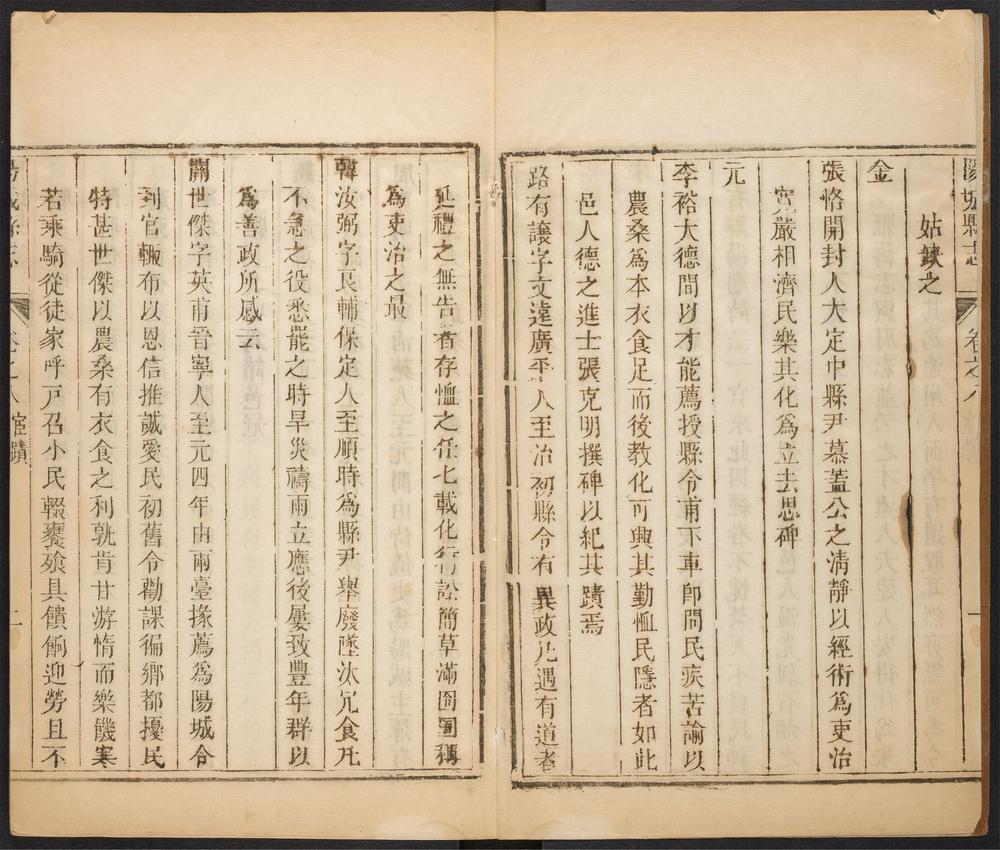 陽城縣志
卷之八
姑缺之
金
張恪開封人大定中縣尹慕蓋公之淸靜以經術爲吏治
寬嚴相濟民樂其化爲立去思碑
元
李裕大德間以才能薦授縣令甫下車卽問民疾苦諭以
農桑爲本衣食足而後教化可興其勤恤民隱者如此
邑人德之進士張克明撰碑以紀其蹟焉
路有讓字文遠廣平人至治初縣令有異政凡遇有道者
延禮之無告者存恤之任七載化行訟簡草滿囹圄稱
爲吏治之最
韓汝弼字良輔保定人至順時爲縣尹舉廢墜汰冗食凡
不急之役悉罷之時旱災禱雨立應後屢致豐年群以
爲善政所感云
關世傑字英甫晉寧人至元四年由兩臺掾薦爲陽城令
到官輒布以恩信推誠愛民初舊令勸課徧鄉都擾民
特甚世傑以農桑有衣食之利孰肯甘游惰而樂饑寒
若乘騎從徒家呼戸召小民輟饔飱具饋餉迎勞且不
陽城縣志
卷之八 宦蹟
二